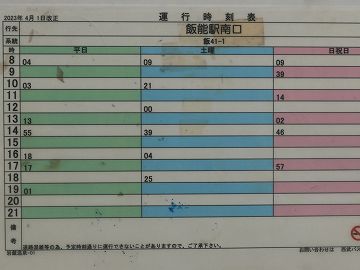 2023年 4月 1日改正
運 行 時 刻 表
行先 飯能駅南口
系統 飯41-1
時 平日 土曜 日祝日
8 04 09 09
9 39
10 03 21
11 14
12 00
13 13 02
14 55 39 46
15
16 18 04
17 57
18 25
19 01
20
21
備考
道路混雑等の為、予定時刻通りに運行できないことがありますので、ご了承下さい。
お問い合わせは 西武バス